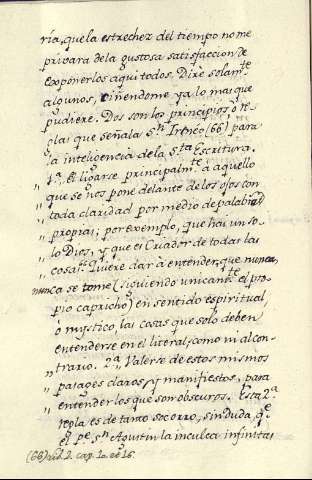 ría, que la estrechez del tiempo no me
privara de la gustosa satisfaccion de
exponerlos aqui todos. Dire solam.te
algunos, ciñendome ya lo mas que
pudiere. Dos son los principios, ò re-
glas que señala S.n Ireneo (66) para
la inteligencia de la S.ta Escritura.
„ 1.a Es ligarse principalm.te à aquello
„ que se nos pone delante de los ojos con
„ toda claridad por medio de palabras
„ propias; por exemplo, que hai un so-
„ lo Dios, y que es Criador de todas las
„ cosas &c.a Quiere dar à entender, que nunca,
nunca se tome (siguiendo unicam.te el pro-
pio capricho) en sentido espiritual,
ò mystico, las cosas que solo deben
entenderse en el literal, como ni al con-
„ trario. 2.a Valerse de estos mismos
„ pasages claros, y manifiestos, para
„ entender los que son obscuros. Esta 2.a
regla es de tanto socorro, sin duda, q.e
el P.e S.n Agustin la inculca infinitas
(66) Lib. 2. cap. 10.